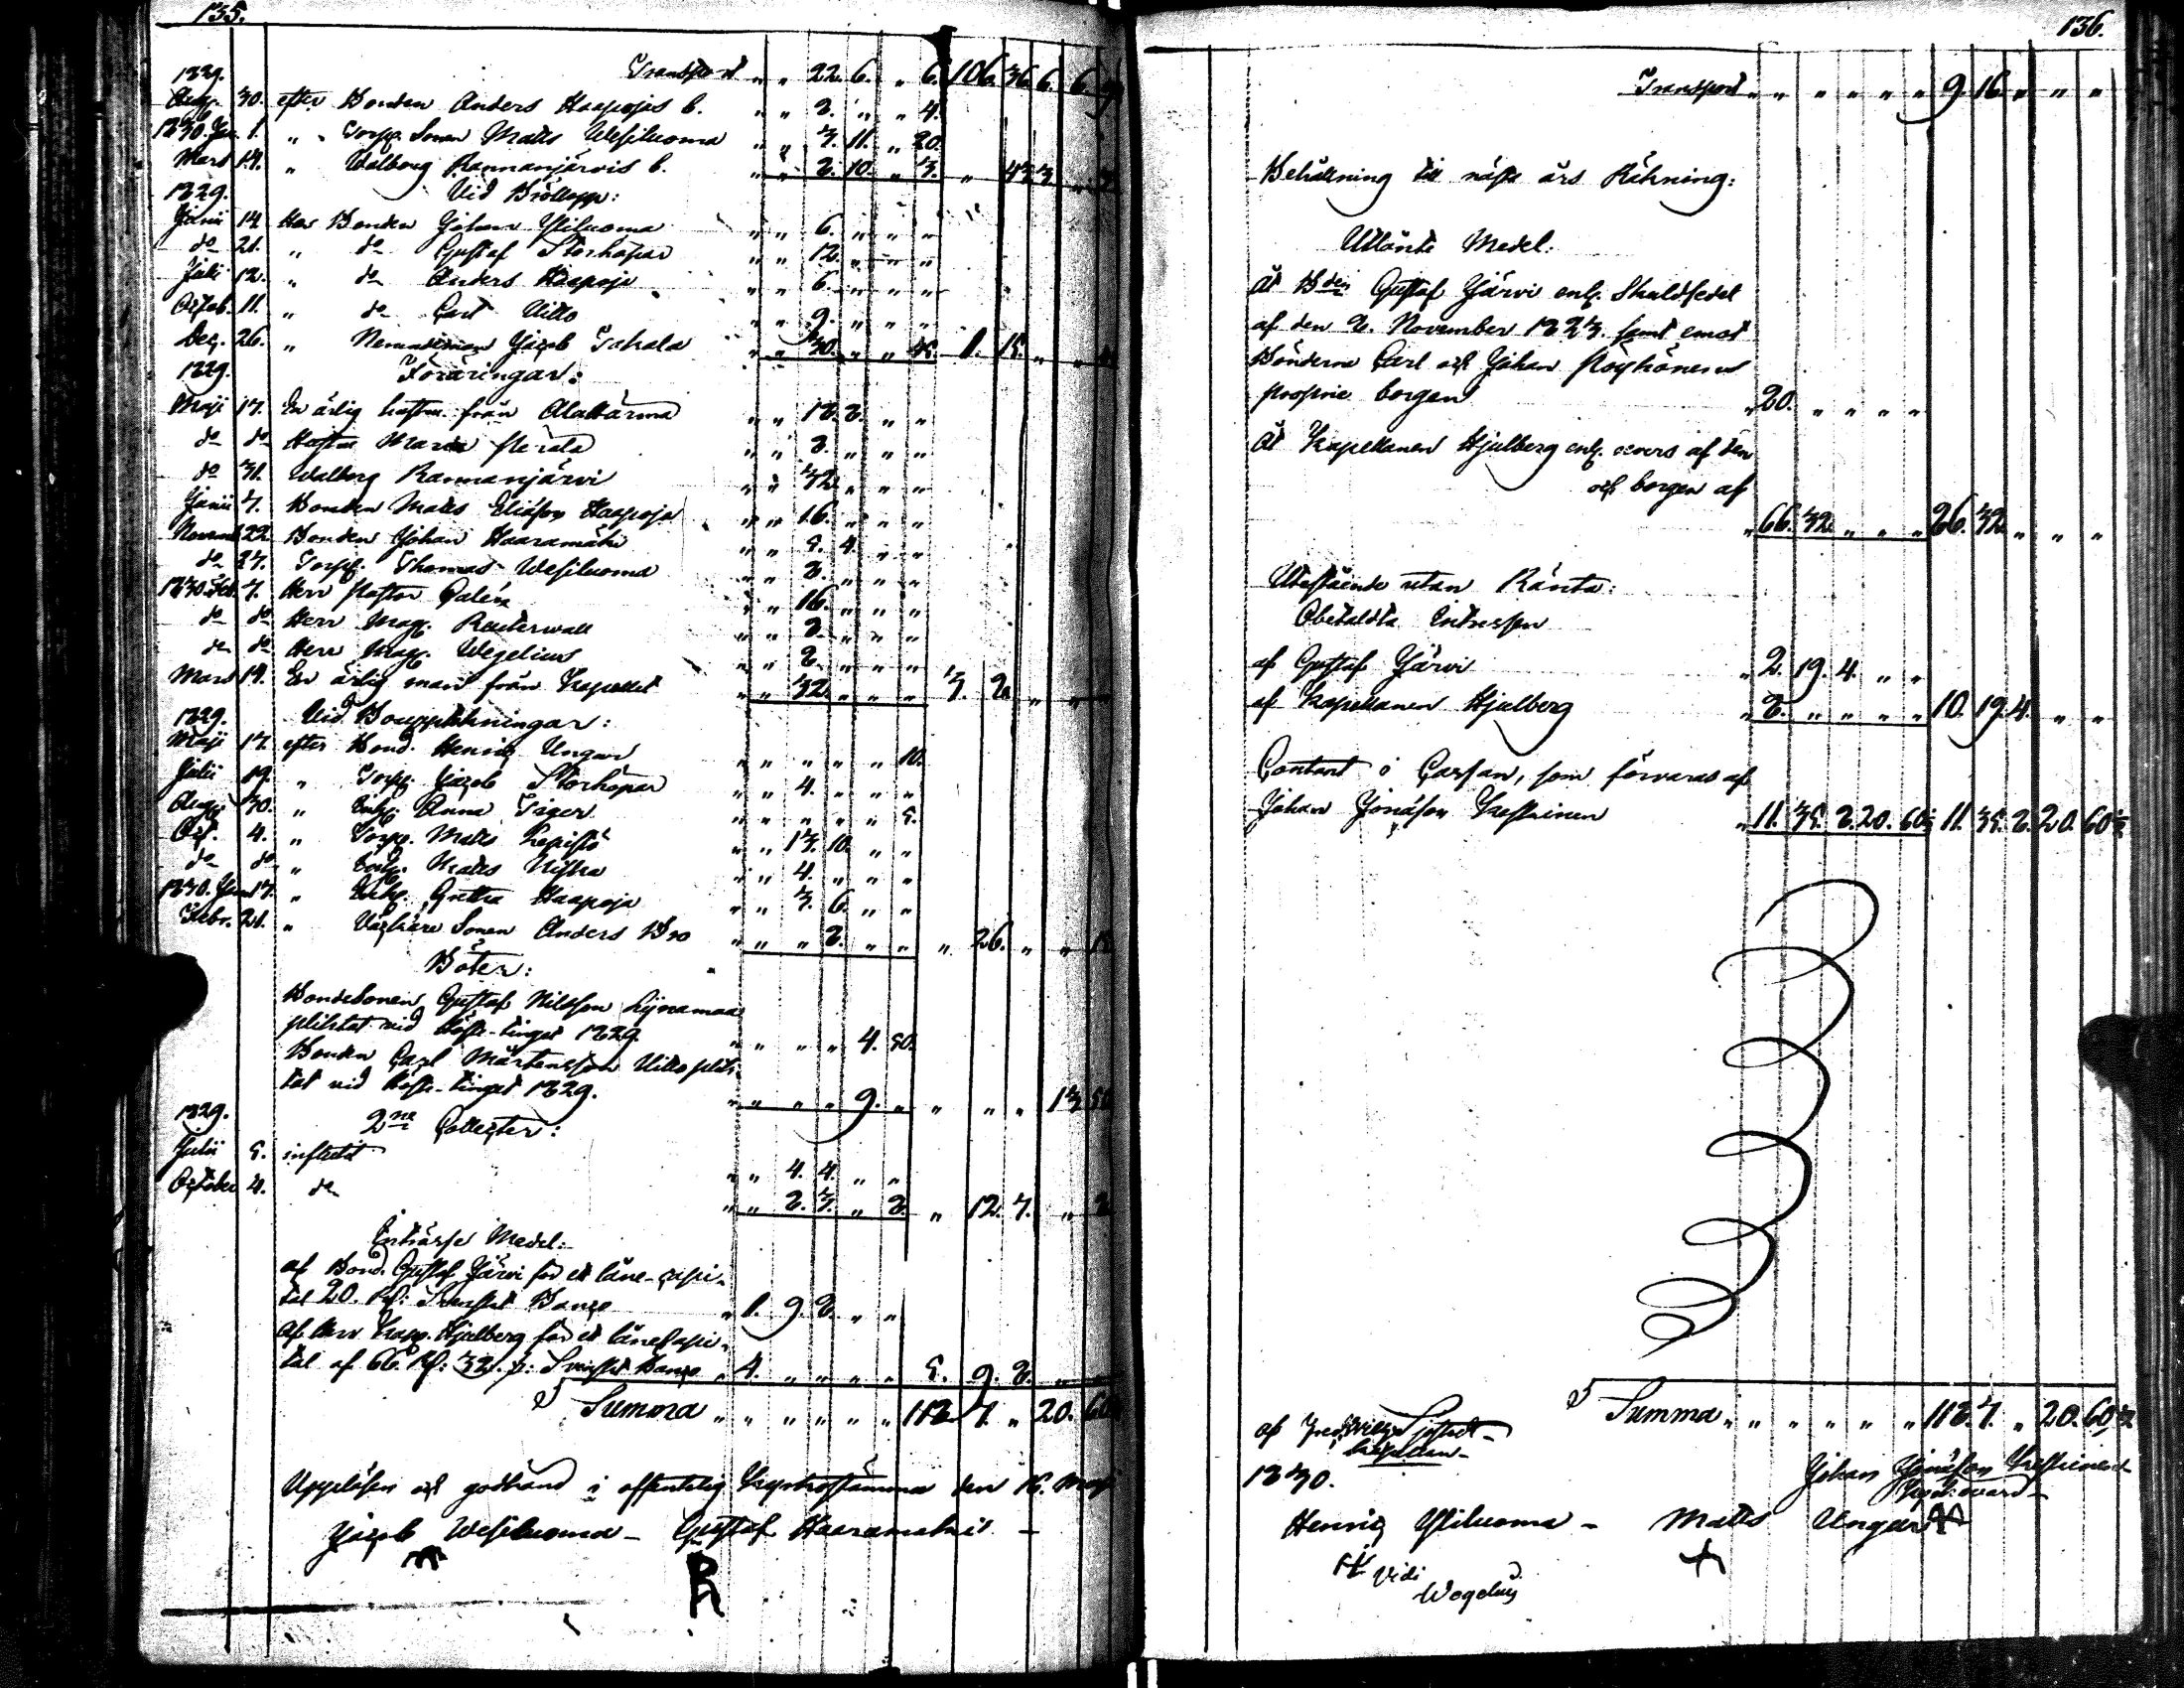 135.
Transport " " 22. 6. " 6. 106. 36. 6. 6.
1829.
Aug. 30. efter Bonden Anders Haapojas b. " " 8. " " 4.
1830. Jan. 1. " Torp. Sonen Matts Wesiluoma " " 3. 11. " 20.
Mars 14. " Walborg Rannanjärvis b. " " 2. 10. " 3. " 43. 3. "
1829. Vid Bröllopp:
Junii 14. Hos Bonden Johan Yliluoma " " 6. " " "
do 21. " do Gustaf Storhopar " " 12. " " "
Julii 12. " do Anders Haapoja " " 6. " " "
Octob. 11. " do Carl Uitto " " 9. " " "
Dec. 26. " Nemndeman Jacob Takala " " 30. " " 45. 1. 15. " "
1829. Föräringar:
Maji 17. En ärlig hustru från Alahärmä " " 18. 8. " "
do do Hustru Maria " " 8. " " "
do 31. Walborg Rannanjärvi " " 32. " " "
Junii 7. Bonden Matts Eliasson Haapoja " " 16. " " "
Novemb. 22. Bonden Johan Haaramäki " " 5. 4. " "
do 27. Torp. Thomas Wesiluoma " " 8. " " "
1830. Feb. 7. Herr Pastor Calén " " 16. " " "
do do Herr Mag. Reuterwall " " 8. " " "
do do Herr Mag. Wegelius " " 8. " " "
Mars 14. En ärlig man från Kapellet " " 32. " " " 3. 2. " "
1829. Vid Bouppteckningar:
Maji 17. efter Bond. Henric Ungar " " " " " 10.
Julii 19. " Torp. Jacob Storhopar " " 4. " " "
Aug. 30. " Enk. Anna Tiger " " " " " 5.
Oct. 4. " Torp. Matts Kepistö " " 13. 10. " "
do do " Torp. Matts Niska " " 4. " " "
1830. Janu. 17. " Enk. Gretha Haapoja " " 3. 6. " "
Febr. 21. " Väfvare Sonen Anders Bro " " " 8. " " " 26. " " 15
Böter:
Bondesonen Gustaf Nilsson Lynamaa
pliktat vid höste-tinget 1829. " " " " 4. 50.
Bonden Carl Mårtensson Uitto plik-
tat vid höste-tinget 1829. " " " " 9. " " " " 13. 50
1829. 2ne Collecter:
Julii 5. influtit " " 4. 4. " "
October 4. do " " 8. 3. " 8. " 12. 7. " 8
Inträsse Medel:
af Bond. Gustaf Järvi för et låne-capi-
tal 20. Rd: Svenskt Banco " 1. 9. 8. " "
Af Herr Kapp. Hjulberg för et lånecapi-
tal af 66. Rd: 32. s: Svenskt Banco " 4. " " " " 5. 9. 8. " "
Summa " " " " " " 118. 7. " 20. 60
Uppläsen och godkänd i offentelig Kyrkostämma den 16. Maji
Jacob Wesiluoma - Gustaf Haaramäki -
R
136.
Transport " " " " " " 9. 16. " " "
Behållning till nästa års Räkning:
Utlånte Medel.
Åt Bden Gustaf Järvi enl. Skuldsedel
af den 2. November 1823. samt emot
Bönderne Carl och Johan Pöyhönens
proprie borgen " 20. " " " "
Åt Kapellanen Hjulberg enl. revers af den
och borgen af
" 66. 32. " " " " 86. 32. " " "
Utestående utan Ränta:
Obetaldta Intressen
af Gustaf Järvi " 2. 19. 4. " "
af Kapellanen Hjulberg " 8. " " " " 10. 19. 4. " "
Contant i Cassan, som förvaras af
Johan Jonasson Keskinen " 11. 35. 8. 20. 60½ 11. 35. 8. 20. 60½
Summa " " " " " " 118. 7. " 20. 60½
af
1830.
Johan Jonasson Keskinen
Henric Yliluoma - Matts Ungar
Vidi
Wegelius